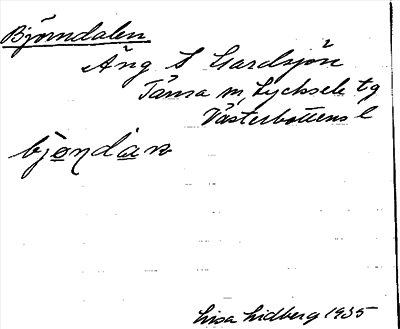 Björndalen
Äng S Gardsjön
Tärna sn, Lycksele tg
Västerbottens l
bjøndan
Lisa Lidberg 1935